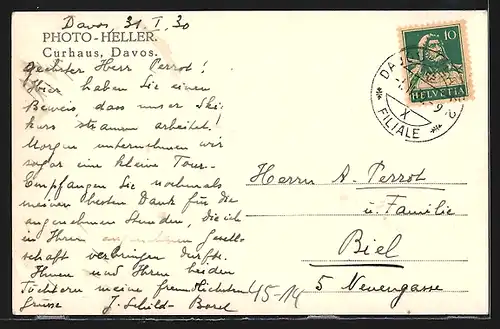 Davos, 31. I. 30
PHOTO-HELLER.
Curhaus, Davos.
Geehrter Herr Perrot!
Hier haben Sie einen
Beweis, dass unser Ski-
kurs stramm arbeitet!
Morgen unternehmen wir
sogar eine kleine Tour.
Empfangen Sie nochmals
meinen besten Dank für die
angenehmen Stunden, die ich
in Ihrer Gesell-
schaft verbringen durfte.
Ihnen und Ihren beiden
Töchtern meine freundlichsten
Grüsse J. Schild-Borel
10
HELVETIA
DAVOS
X
FILIALE
Herrn A. Perrot
u. Familie
Biel
5 Neuengasse
45-14